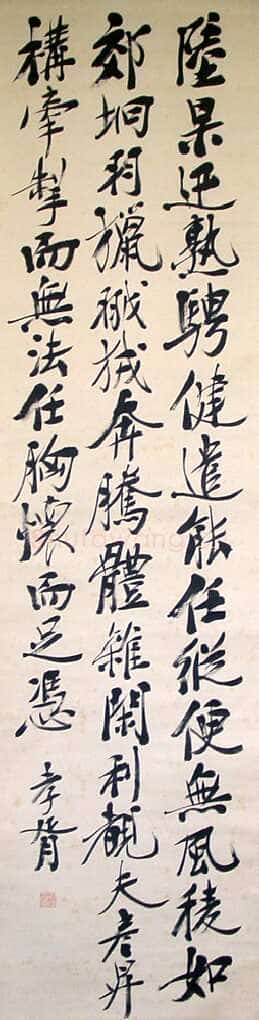 陸杲迅熟騁健遣能任縱便無風稜如
郊坰羽獵奔騰體雜閑利覩夫彥昇
構牽掣而無法任胸懷而足憑 孝胥